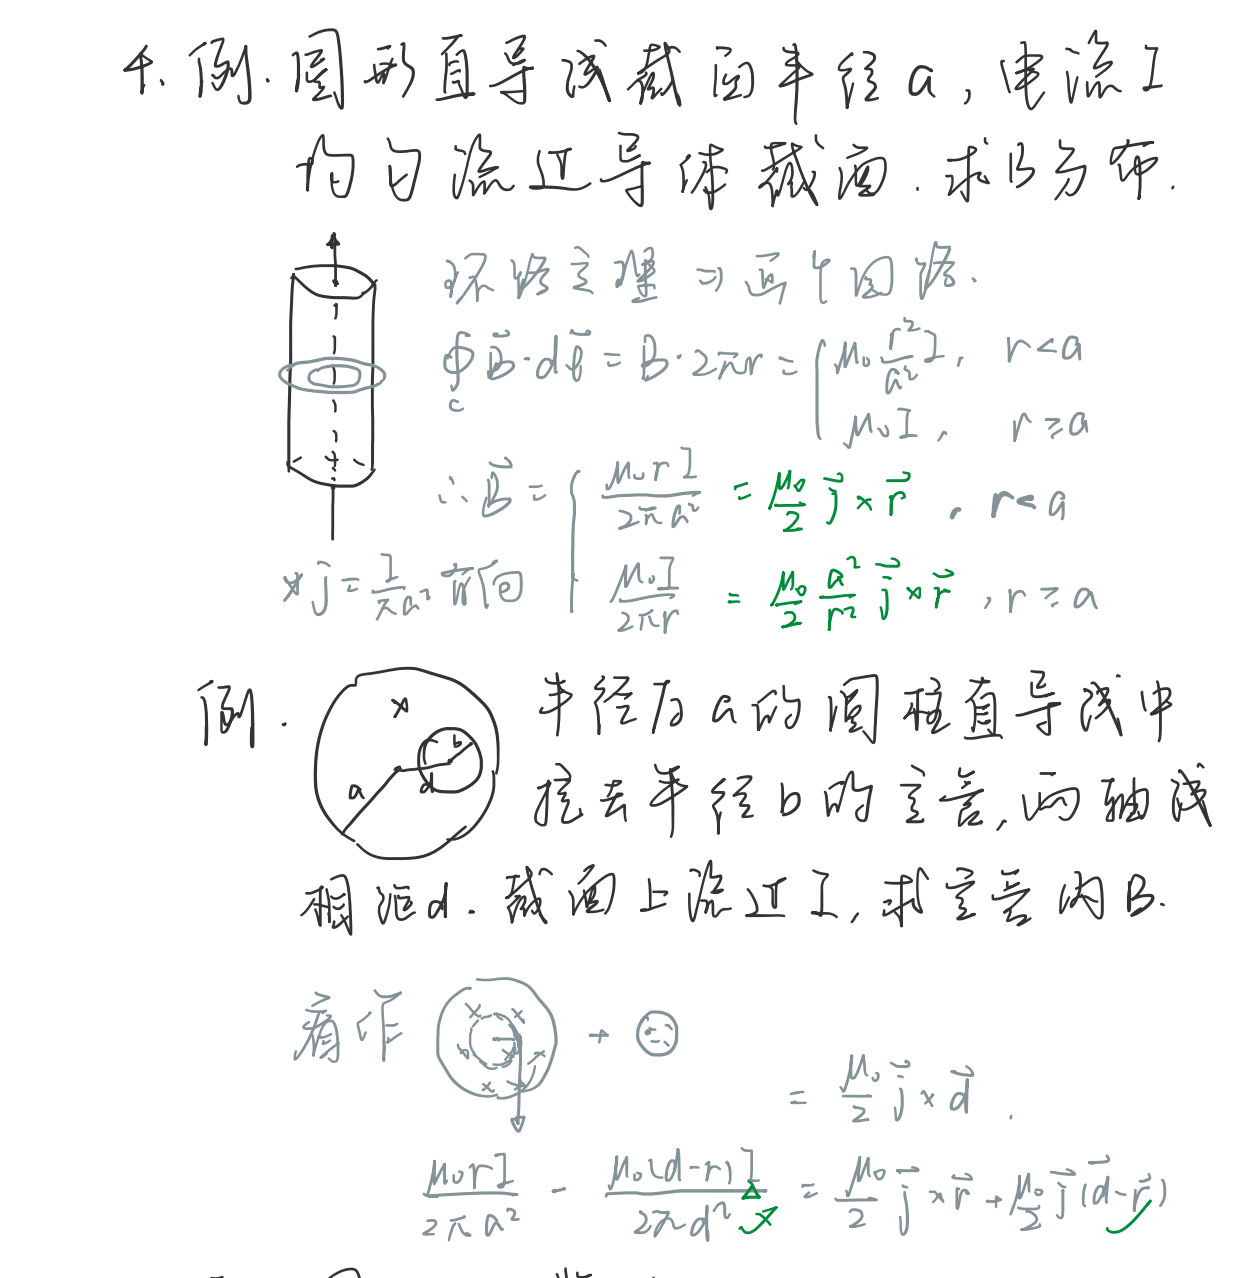 4. 例. 圆形直导线截面半径a, 电流I
均匀流过导体截面. 求B分布.
环路定理 ⇒ 画个回路.
∮_c B⃗·dℓ⃗ = B·2πr = { μ₀ r²/a² I, r<a
μ₀I, r≥a
∴ B⃗ = { μ₀rI/2πa² = μ₀/2 j⃗×r⃗, r<a
μ₀I/2πr = μ₀/2 a²/r² j⃗×r⃗, r≥a
* j⃗ = I/πa² 有方向
例. 半径为a的圆柱直导线中
a b d
挖去半径b的空管, 两轴线
相距d. 截面上流过I, 求空管内B.
看作 +
= μ₀/2 j⃗×d⃗.
μ₀rI/2πa² - μ₀(d-r)I/2πd² = μ₀/2 j⃗×r⃗ + μ₀/2 j⃗(d⃗-r⃗)